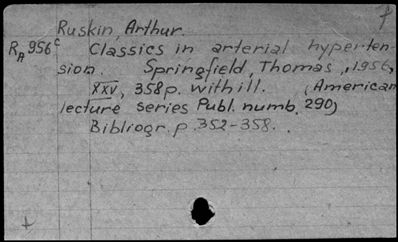 Ruskin, Arthur.
RA 956c Classics in arterial hyperten-
sion. Springfield, Thomas, 1956,
XXV, 358 p. with ill. (American
lecture series Publ. numb. 290)
Bibliogr. p. 352-358.